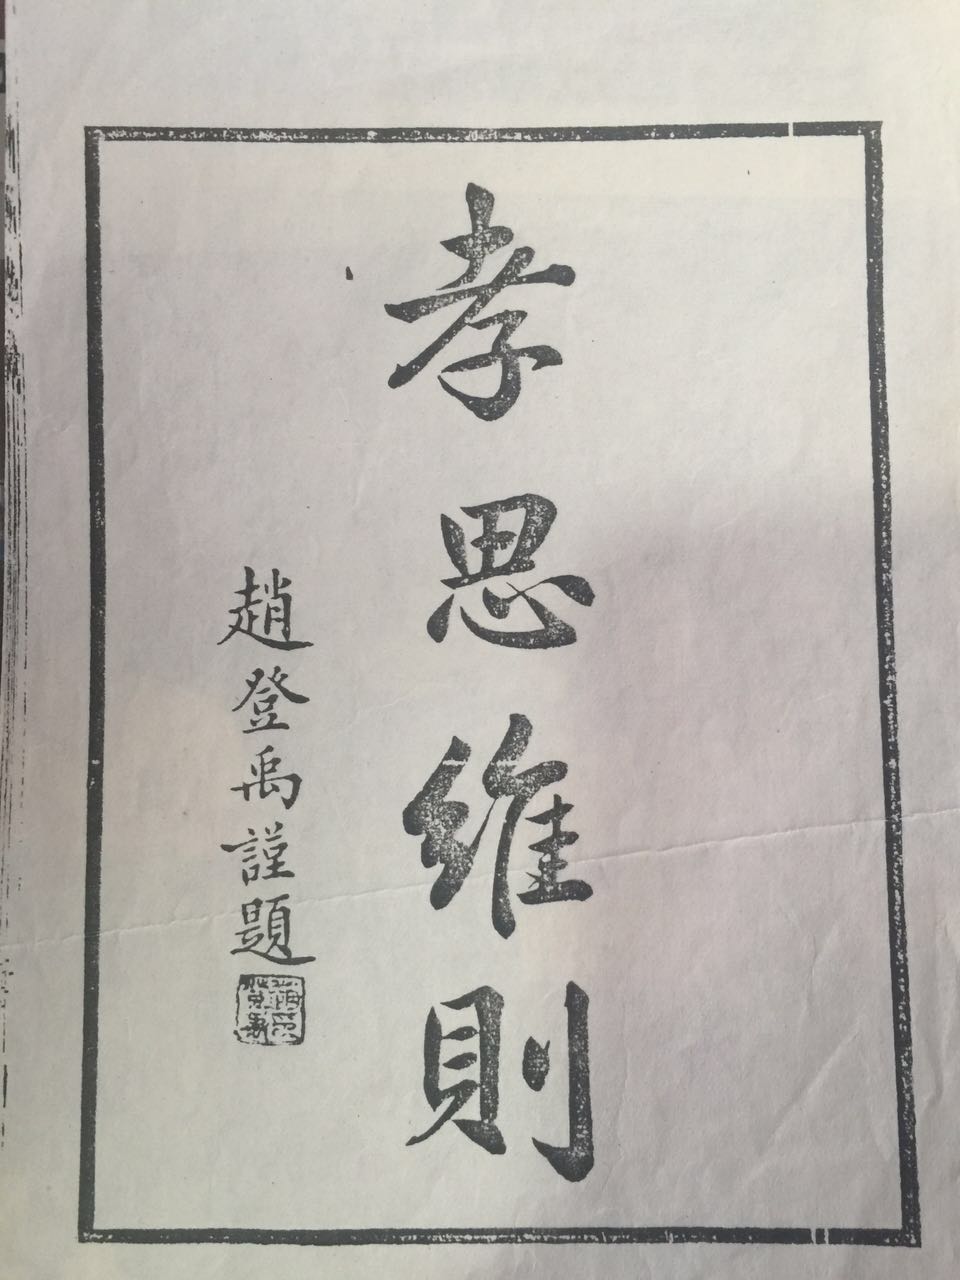 孝思維則
趙登禹謹題